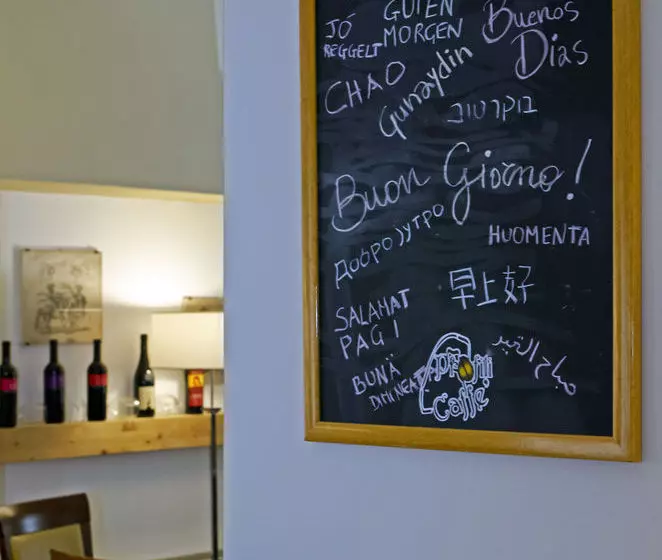 JÓ
REGGELT
GUTEN
MORGEN
Buenos
Días
CHAO
Gunaydin
בוקר טוב
Buon Giorno!
Добројутро
HUOMENTA
早上好
SALAMAT
PAGI
صباح الخير
BUNĂ
Caffé